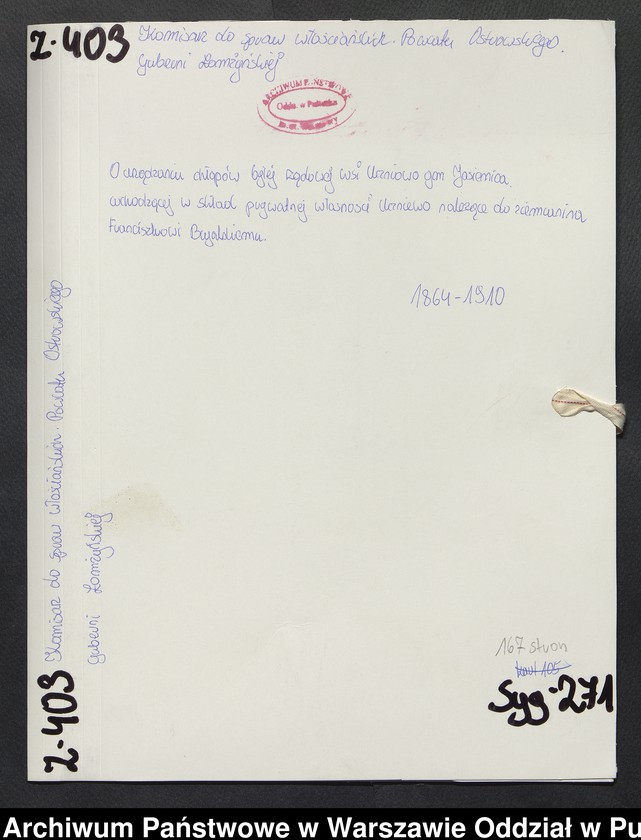 Z-403 Komisarz do spraw włościańskich. Powiatu Ostrowskiego.
Guberni Łomżyńskiej
ARCHIWUM PAŃSTWOWE
Oddz. w Pułtusku
m.st. Warszawy
O urządzaniu chłopów byłej rządowej wsi Uzniewo gm Jasienica,
wchodzącej w skład prywatnej własności Uzniewo należące do ziemianina
Franciszkowi
1864-1910
Komisarz do spraw włościańskich. Powiatu Ostrowskiego
Guberni Łomżyńskiej
Z-403
167 stron
kart 105
Syg-271
Archiwum Państwowe w Warszawie Oddział w Pu